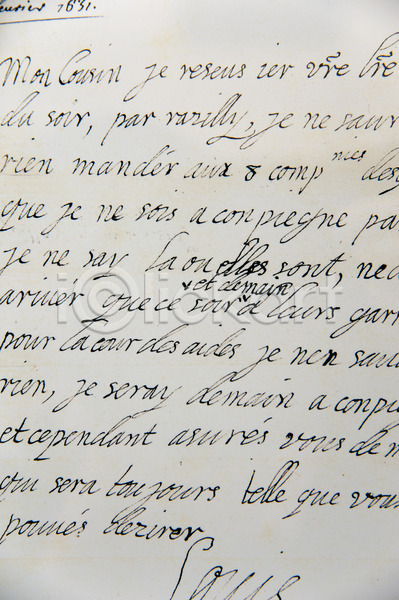 feurier 1631.
Mon Cousin je reseus ier vr̃e lr̃e
du soir, par razilly, je ne saur
rien mandér aux 8 comp nies des
que je ne sois a conpiegne pa
je ne say la ou elles sont, ne d
et demain
ariuer que ce soir a leurs garn
pour la cour des aides je nen sau
rien, je seray demain a conpi
et cependant asurés vous de m
qui sera toujours telle que vou
pouués dezirer
Louis
iclickart